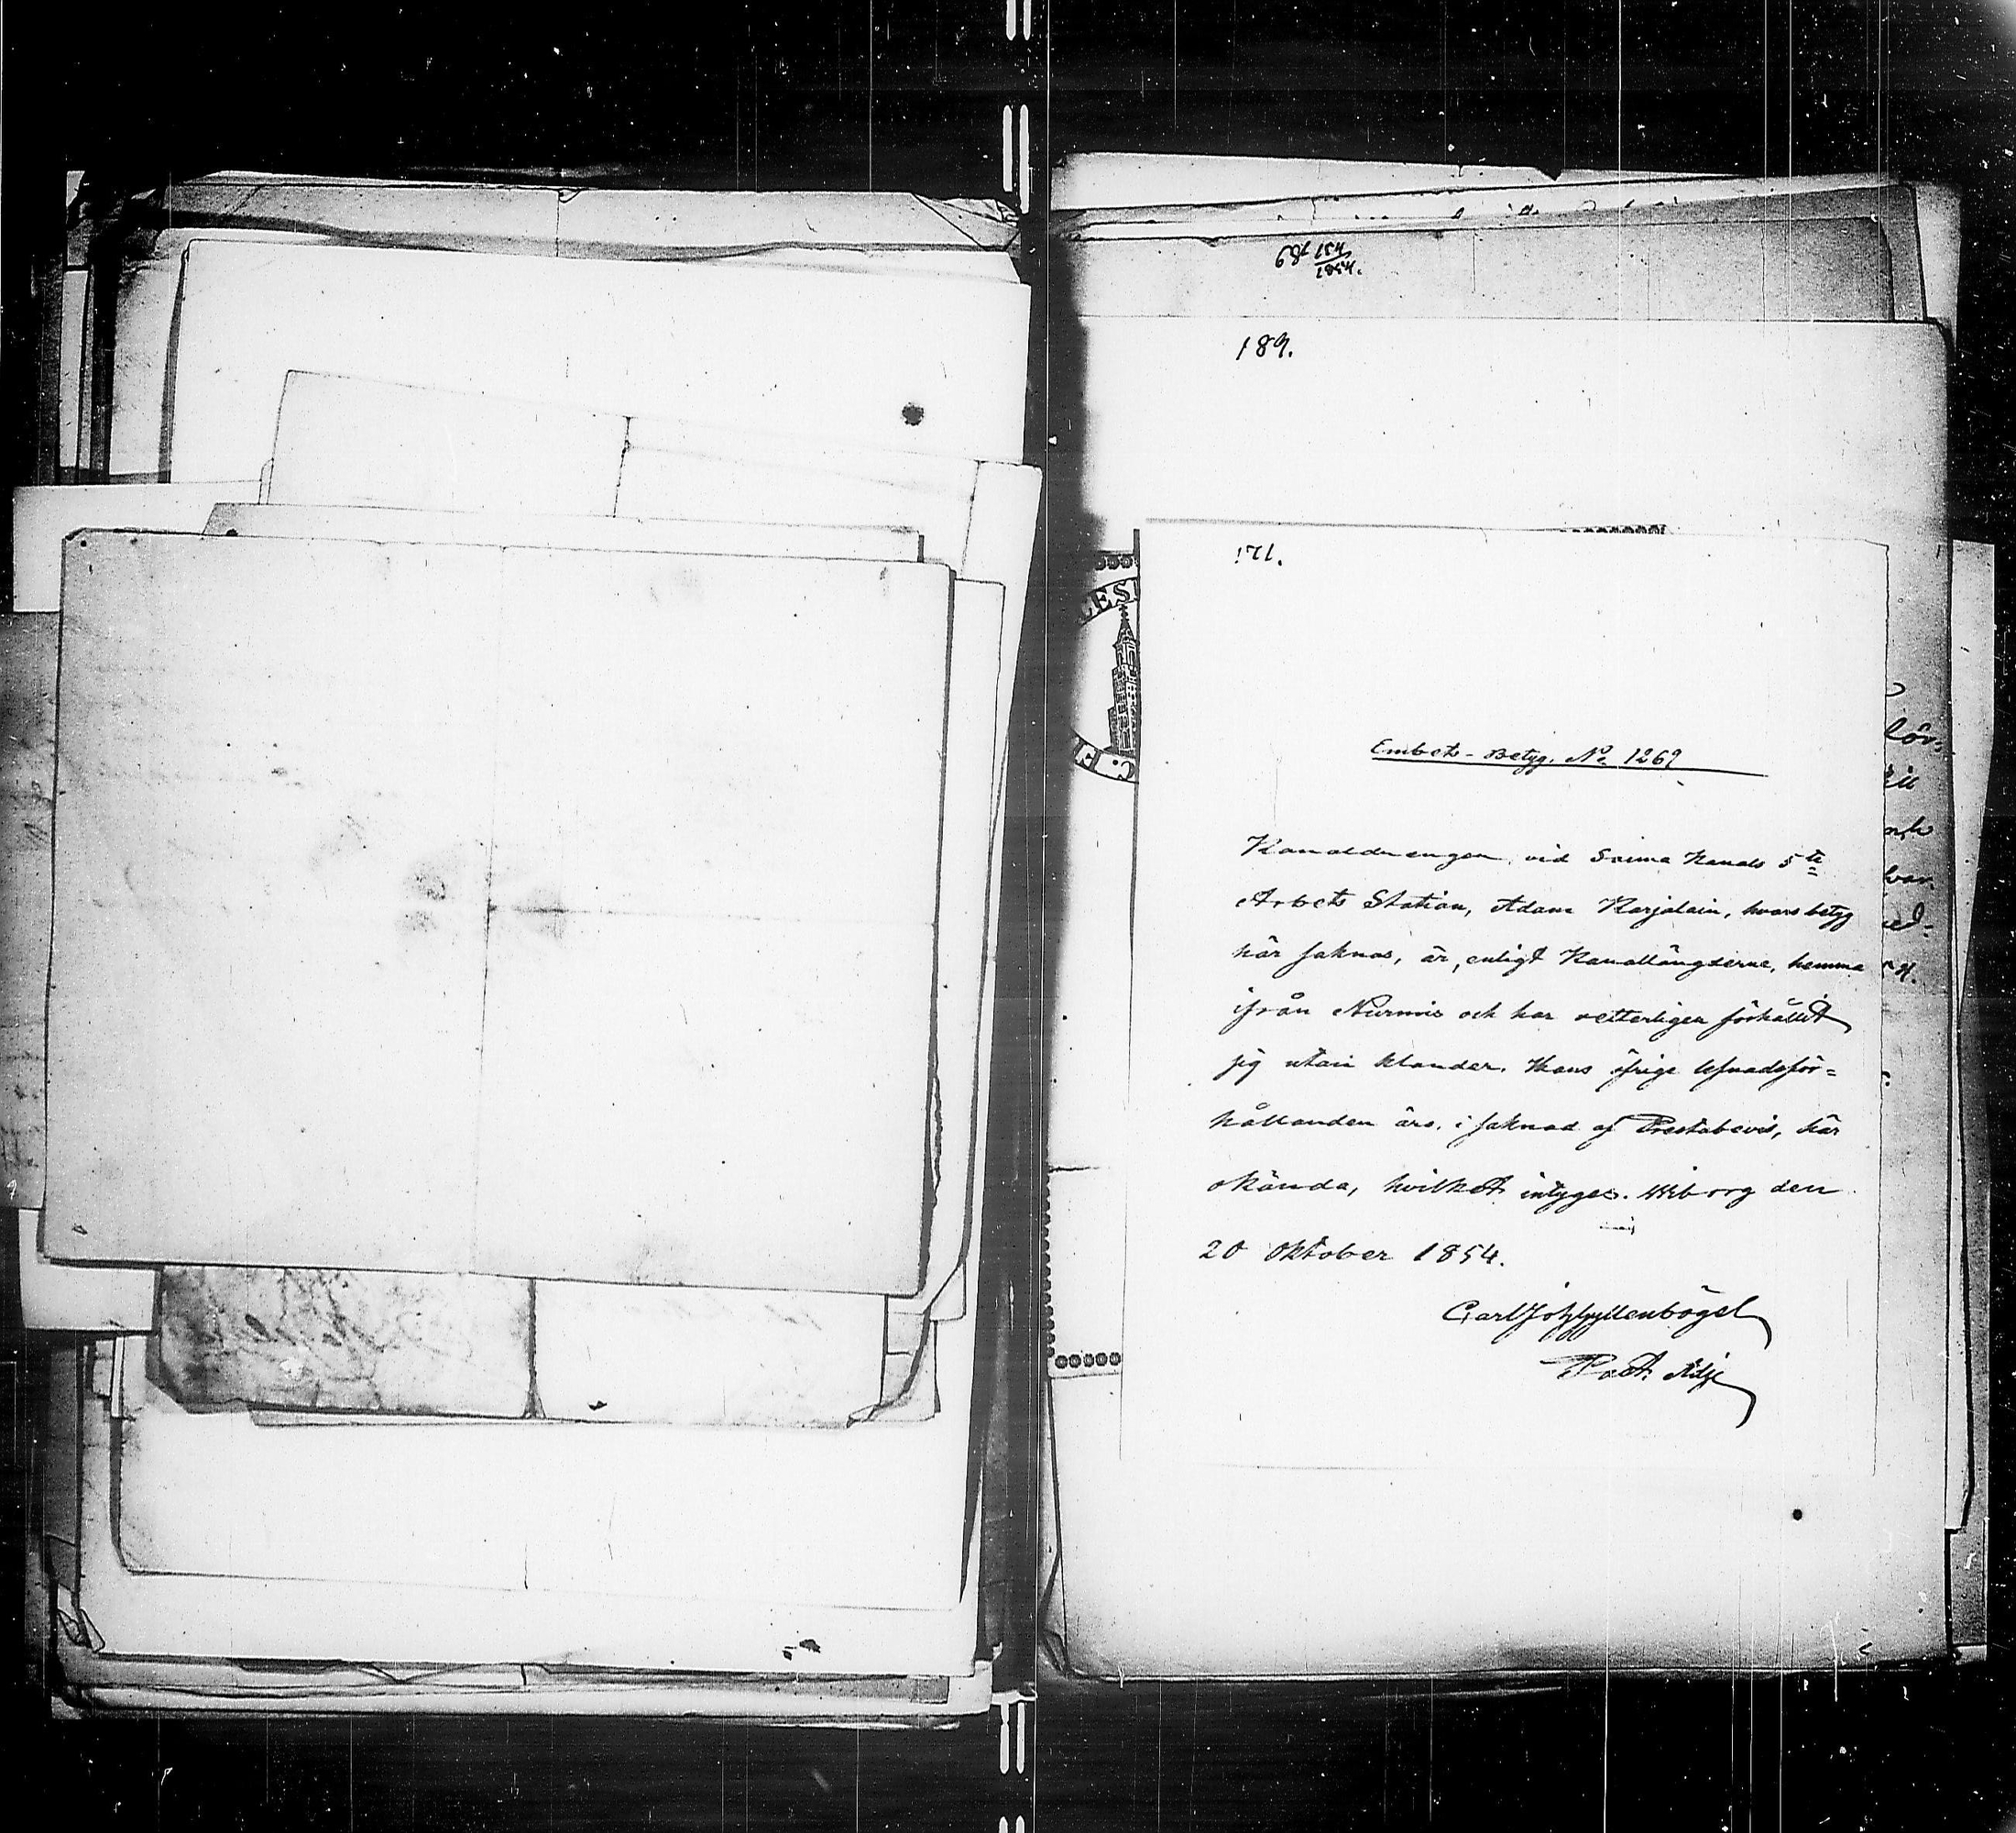 189.
171.
Embets-Betyg. No 1269
Kanaldrengen vid Saima Kanals 5te
Arbets Station, Adam Karjalain, hvars betyg
här saknas, är, enligt Kanallängderne, hemma
ifrån Nurmis och har vetterligen förhållit
sig utan klander. Hans öfrige lefnadsför=
hållanden äro, i saknad af Prestabevis, här
okända, hvilket intygas. Wiborg den
20 Oktober 1854.
Carl Joh Gyllenbögel
Past. Adj.